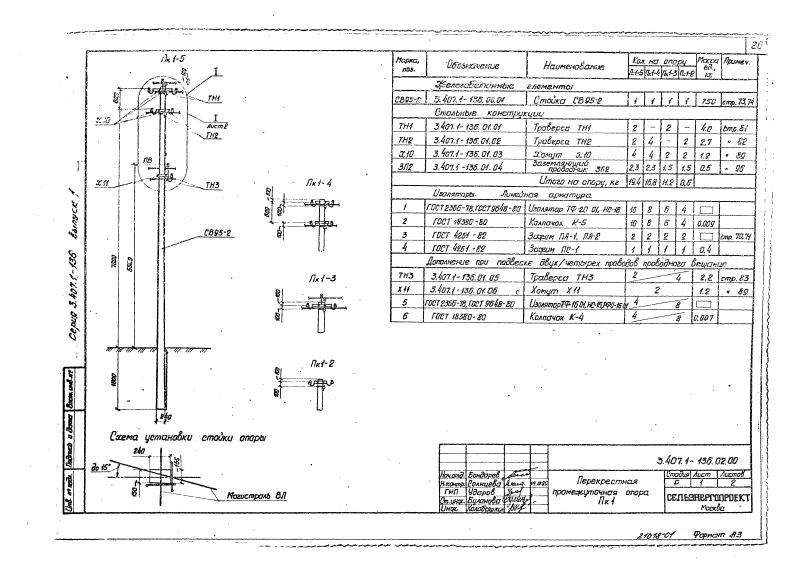 26
Серия 3.407.1-136 Выпуск 1
Пк1-5
I
ТН1
I
лист 2
ТН2
Х10
ПВ
Х11
ТН3
СВ95-2
7000
1800
240
Пк1-4
Пк1-3
Пк1-2
Схема установки стойки опоры
240
до 15°
Магистраль ВЛ
Марка, поз. Обозначение Наименование Кол. на опору Масса ед., кг Примеч.
Пк1-5 Пк1-4 Пк1-3 Пк1-2
Железобетонные элементы
СВ95-2 Стойка СВ95-2 1 1 1 1 750 стр. 73,74
Стальные конструкции
ТН1 3.407.1-136.01.01 Траверса ТН1 2 - 2 - 4.0 стр. 81
ТН2 3.407.1-136.01.02 Траверса ТН2 2 4 - 2 2.7 " 82
Х10 3.407.1-136.01.03 Хомут Х10 4 4 2 2 1.2
ЗП2 3.407.1-136.01.04 Заземляющий проводник ЗП2 2,3 2,3 1.5 1.5 0,5
Итого на опору, кг
Изоляторы. Линейная арматура
1 ГОСТ 2366-78, ГОСТ 9648-80 Изолятор ТФ-20 01, НС-18 10 8 6 4
2 ГОСТ 18380-80 Колпачок К-5 10 8 6 4 0.009
3 ГОСТ 4261-82 Зажим ПА-1, ПА-2 2 2 2 2 стр. 70,71
4 ГОСТ 4261-82 Зажим ПС-1 1 1 1 1 0,4
Дополнение при подвеске двух/четырех проводов проводного вещания
ТН3 3.407.1-136.01.05 Траверса ТН3 2 4 2.2 стр. 83
Х11 3.407.1-136.01.06 Хомут Х11 2 1.2 " 89
5 ГОСТ 2366-78, ГОСТ 9648-80 4 8
6 ГОСТ 18380-80 Колпачок К-4 4 8 0.007
Инв. № подл. Подпись и дата Взам. инв. №
3.407.1-136.02.00
Нач.отд. Бондарев
Н.контр. Солнцева
ГИП Ударов
Ст.инж. Буланова
Инж.
Перекрестная промежуточная опора Пк1
Стадия Лист Листов
Р 1 2
СЕЛЬЭНЕРГОПРОЕКТ
Москва
21018-01 Формат А3